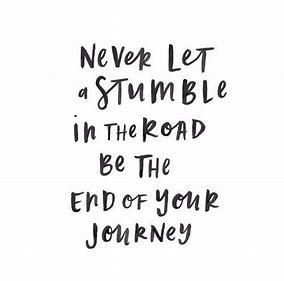 NEVER LET
a STUMBLE
in THE ROAD
BE THE
END OF YOUR
JOURNEY